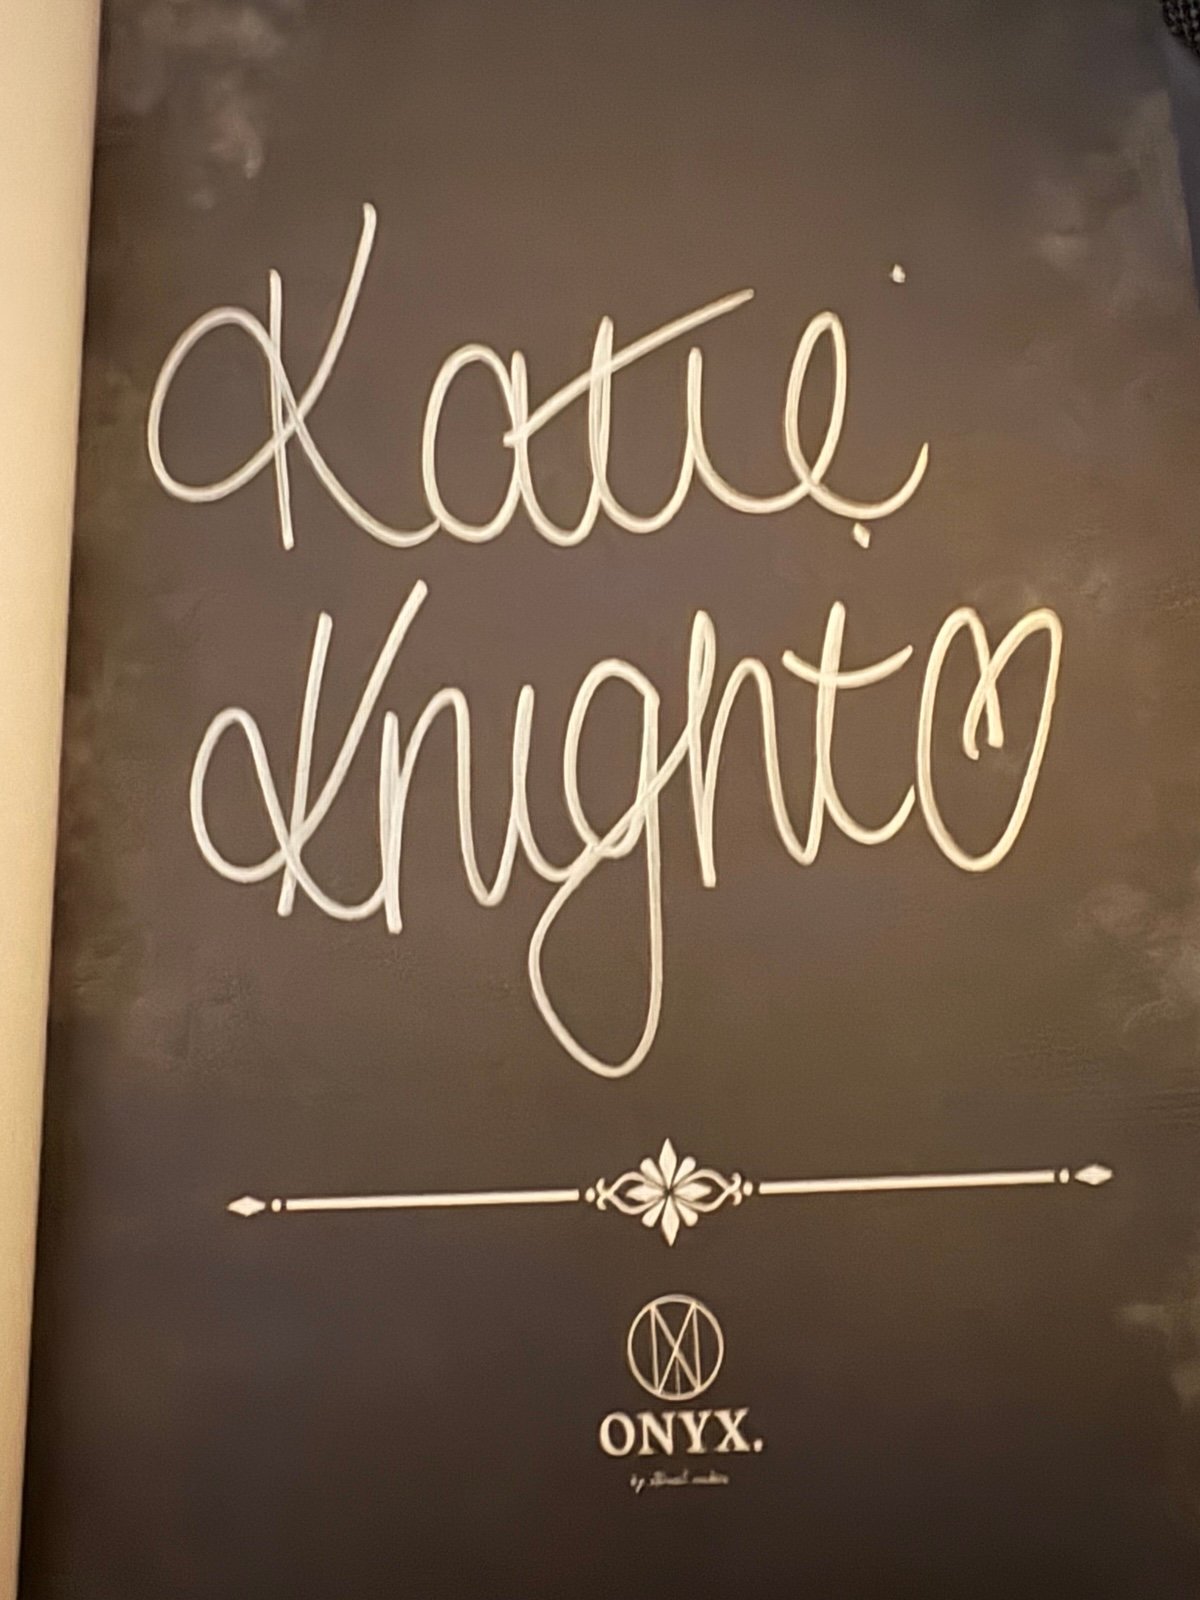 Katie
Knight
ONYX.
by